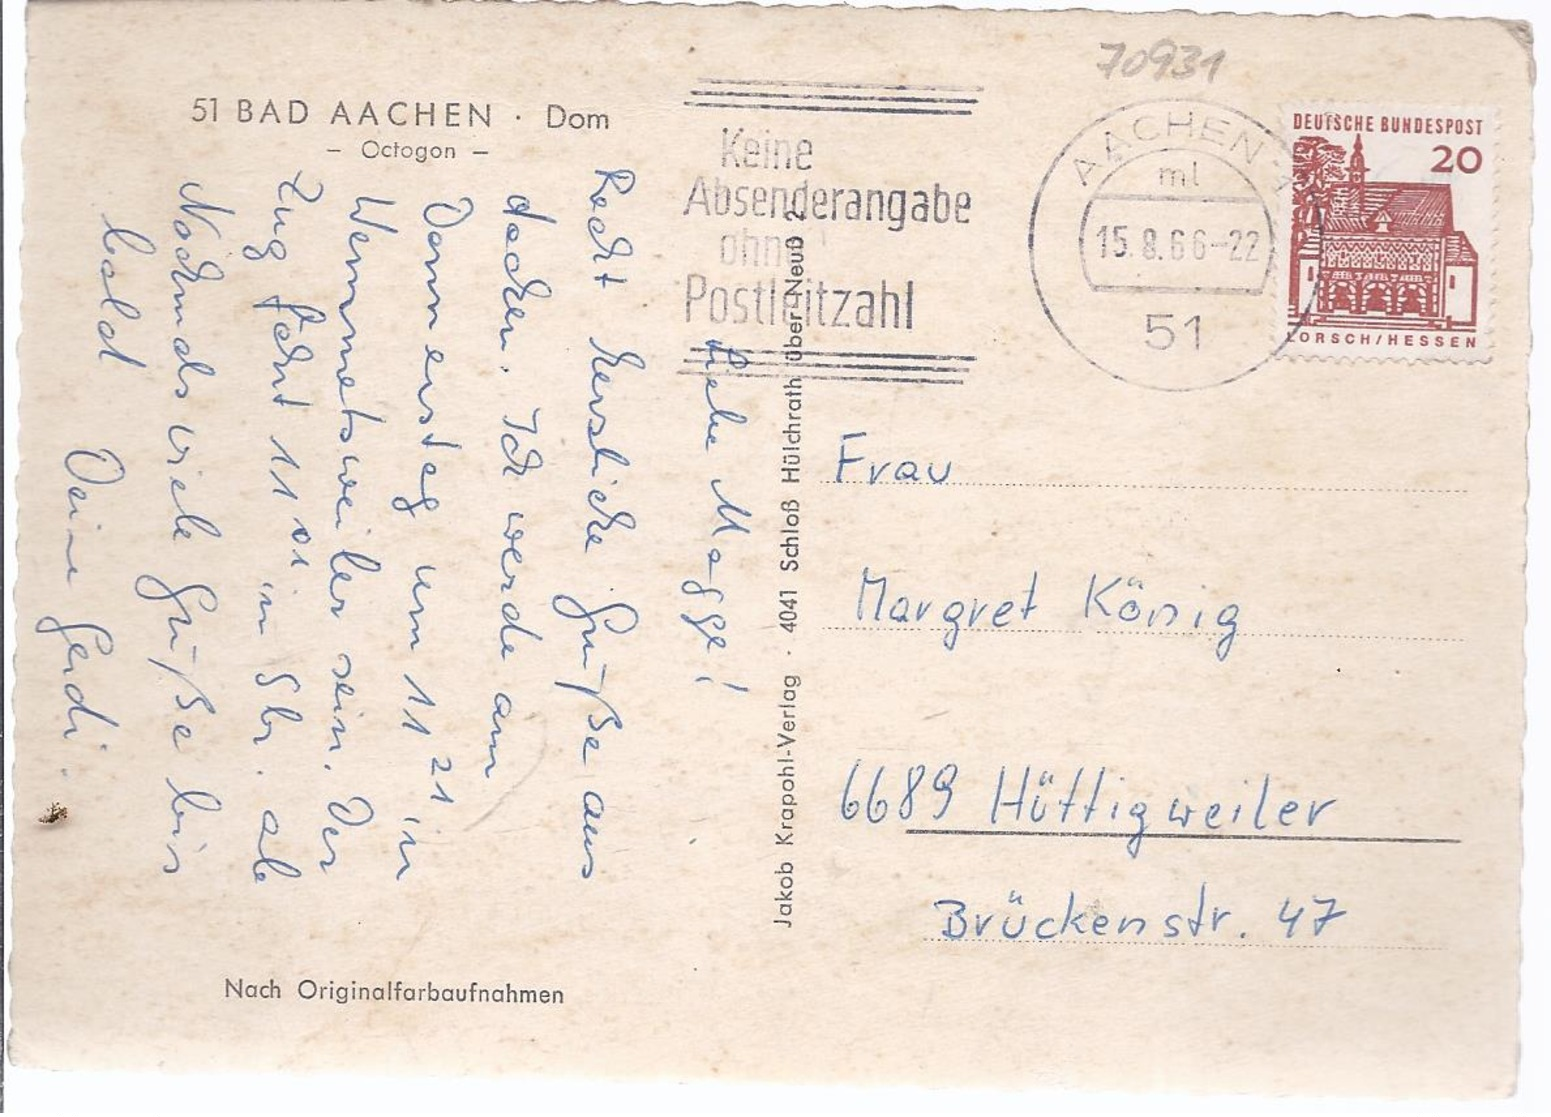 51 BAD AACHEN · Dom
– Octogon –
Liebe Magge!
Recht herzliche Grüße aus
Aachen. Ich werde am
Donnerstag um 11 21 in
Wemmetsweiler sein. Der
Zug fährt 11 01 in Sbr. ab
Nochmals viele Grüße bis
bald Deine Gerdi.
Nach Originalfarbaufnahmen
Jakob Krapohl-Verlag · 4041 Schloß Hülchrath über Neuß 2
70931
Keine
Absenderangabe
ohne
Postleitzahl
AACHEN
ml
15.8.66-22
51
DEUTSCHE BUNDESPOST
20
LORSCH/HESSEN
Frau
Margret König
6689 Hüttigweiler
Brückenstr. 47